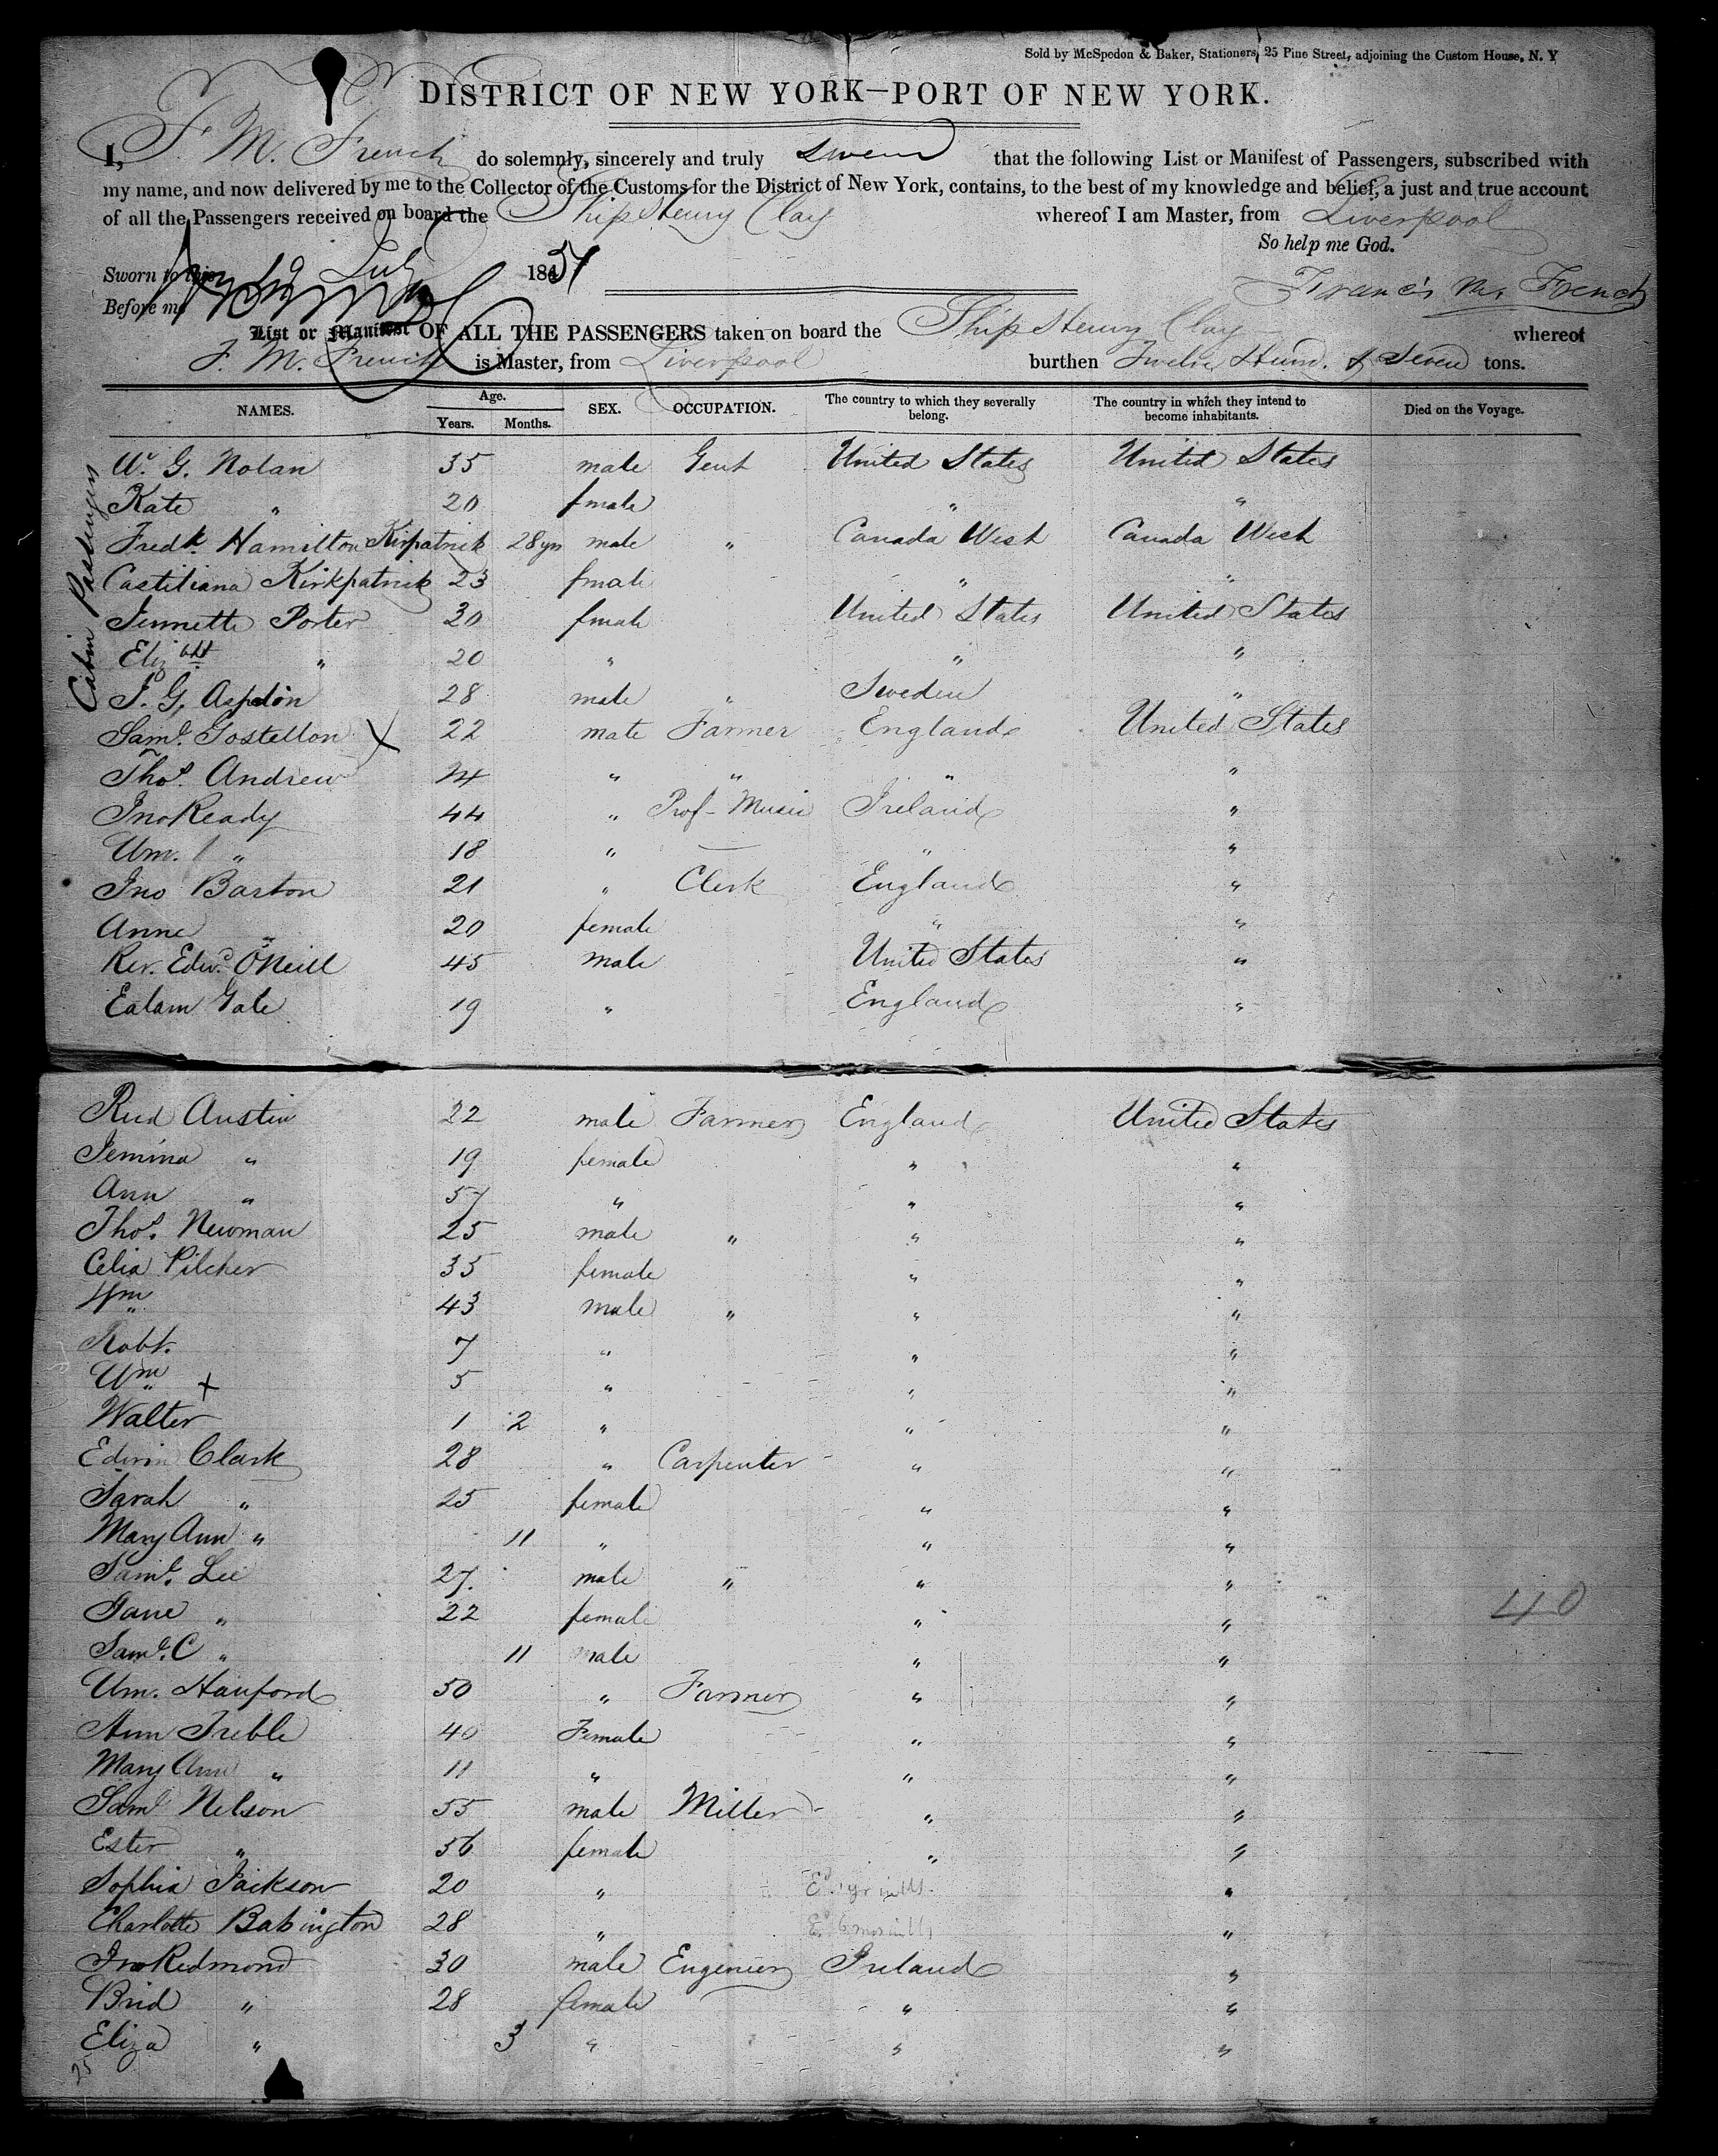 Sold by McSpedon & Baker, Stationers, 25 Pine Street, adjoining the Custom House, N. Y
DISTRICT OF NEW YORK—PORT OF NEW YORK.
I, F. M. French do solemnly, sincerely and truly swear that the following List or Manifest of Passengers, subscribed with
my name, and now delivered by me to the Collector of the Customs for the District of New York, contains, to the best of my knowledge and belief, a just and true account
of all the Passengers received on board the Ship Henry Clay whereof I am Master, from Liverpool
So help me God.
Sworn to this July 1851
Francis M. French
Before me
List or Manifest OF ALL THE PASSENGERS taken on board the Ship Henry Clay whereof
F. M. French is Master, from Liverpool burthen Twelve Hund. & Seven tons.
NAMES. Age. Years. Months. SEX. OCCUPATION. The country to which they severally belong. The country in which they intend to become inhabitants. Died on the Voyage.
Cabin Passengers
W. G. Nolan 35 male Gent United States United States
Kate " 20 fmale " "
Fredk. Hamilton Kirpatrick 28 yrs male " Canada West Canada West
Castiliana Kirkpatrick 23 fmale " "
Jennette Porter 30 fmale United States United States
Elizbht " 20 " " "
J. G. Aspdon 28 male " Sweden "
Saml. Gostellon X 22 male Farmer England United States
Thos. Andrew 24 " " " "
Jno Ready 44 " Prof- Music Ireland "
Wm. " 18 " — " "
Jno Barton 21 " Clerk England "
Anne " 20 female " "
Rev. Edwd. O'Neill 45 male United States "
Ealam Gale 19 " England "
Rud Austin 22 male Farmer England United States
Jemina " 19 female " "
Ann " 57 " " "
Thos. Newman 25 male " " "
Celia Pilcher 35 female " "
Wm " 43 male " " "
Robt. 7 " " "
Wm " x 5 " " "
Walter 1 2 " " "
Edwin Clark 28 " Carpenter " "
Sarah " 25 female " "
Mary Ann " 11 " " "
Saml. Lee 27. male " " "
Jane " 22 female " "
Saml. C " 11 male " "
40
Wm. Hanford 50 " Farmer " "
Ann Treble 40 Female " "
Mary Ann " 11 " " "
Saml Nelson 55 male Miller " "
Ester " 56 female " "
Sophia Jackson 20 " "
Charlotte Babington 28 " "
Jno Redmond 30 male Engenier Ireland "
Brid " 28 female " "
Eliza " 3 " " "
25